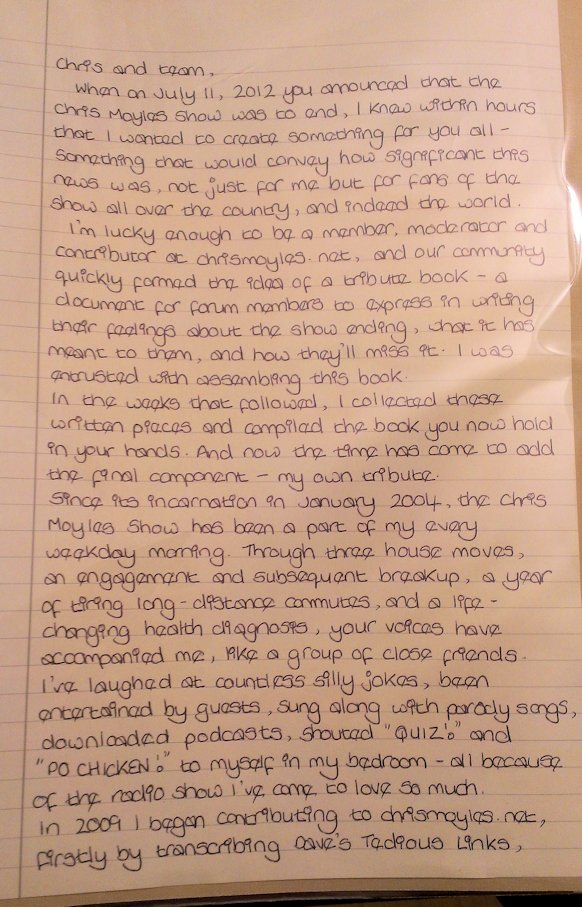 Chris and team,
When on July 11, 2012 you announced that the
Chris Moyles Show was to end, I knew within hours
that I wanted to create something for you all -
something that would convey how significant this
news was, not just for me but for fans of the
show all over the country, and indeed the world.
I'm lucky enough to be a member, moderator and
contributor at chrismoyles.net, and our community
quickly formed the idea of a tribute book - a
document for forum members to express in writing
their feelings about the show ending, what it has
meant to them, and how they'll miss it. I was
entrusted with assembling this book.
In the weeks that followed, I collected these
written pieces and compiled the book you now hold
in your hands. And now the time has come to add
the final component - my own tribute.
Since its incarnation in January 2004, the Chris
Moyles Show has been a part of my every
weekday morning. Through three house moves,
an engagement and subsequent breakup, a year
of tiring long-distance commutes, and a life-
changing health diagnosis, your voices have
accompanied me, like a group of close friends.
I've laughed at countless silly jokes, been
entertained by guests, sung along with parody songs,
downloaded podcasts, shouted "QUIZ!" and
"PO CHICKEN!" to myself in my bedroom - all because
of the radio show I've come to love so much.
In 2009 I began contributing to chrismoyles.net,
firstly by transcribing Dave's Tedious Links,